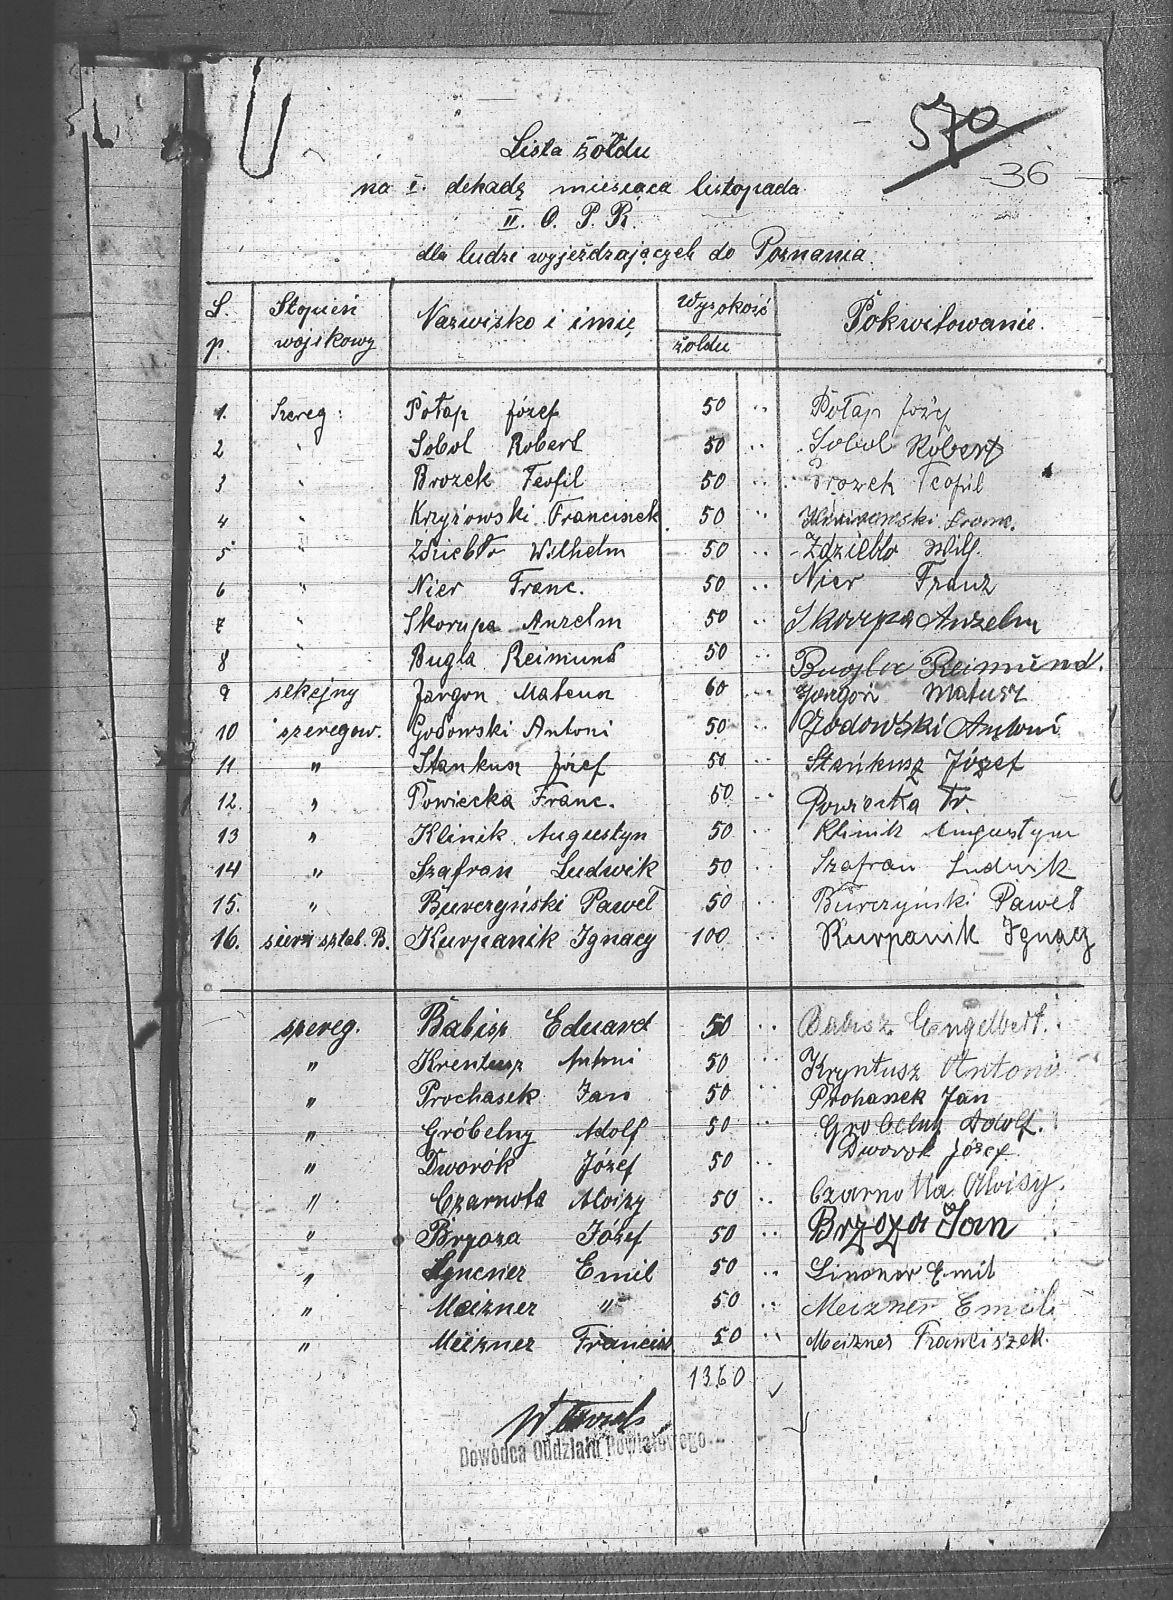 570
36
Lista żołdu
na I. dekadę miesiąca listopada
II. O. P. R.
dla ludzi wyjeżdzających do Poznania
L. p. Stopień wojskowy Nazwisko i imię Wysokość żołdu Pokwitowanie.
1. Szereg: Potap Józef 50 Potap Józef
2 " Sobol Robert 50 Sobol Robert
3 " Brozek Teofil 50 Brozek Teofil
4 " Krzyżowski Franciszek 50
5 " Zdziebło Wilhelm 50 Zdziebło Wilh.
6 " Nier Franc. 50 Nier Franz
7 " Skorupa Anzelm 50 Skorupa Anzelm
8 " Bugla Reimund 50 Bugla Reimund.
9 sekcjny Jargon Mateusz 60 Jargon Matusz
10 szeregow. Godowski Antoni 50 Godowski Antoni
11 " Stankusz Józef 50 Stankusz Józef
12. " Powiecka Franc. 50 Powiecka Fr.
13 " Klinik Augustyn 50 Klinik Augustyn
14 " Szafran Ludwik 50 Szafran Ludwik
15. " Burczyński Paweł 50 Burczyński Paweł
16. sierż sztab. B. Kurpanik Ignacy 100 Kurpanik Ignacy
szereg. Babisz Eduard 50 Babisz Engelbert.
" Krentusz Antoni 50 Kryntusz Antoni
" Prochasek Jan 50 Prohasek Jan
" Gróbelny Adolf 50 Grobelny Adolf.
" Dworók Józef 50 Dworok Józef
" Czarnota Aloizy 50 Czarnotta Aloisy.
" Brzoza Józef 50 Brzoza Jan
" Lyncner Emil 50 Emil
" Meizner " 50 Meizner Emil
" Meizner Francisz 50 Meizner Franciszek.
1360
Dowódca Oddziału Powiatowego